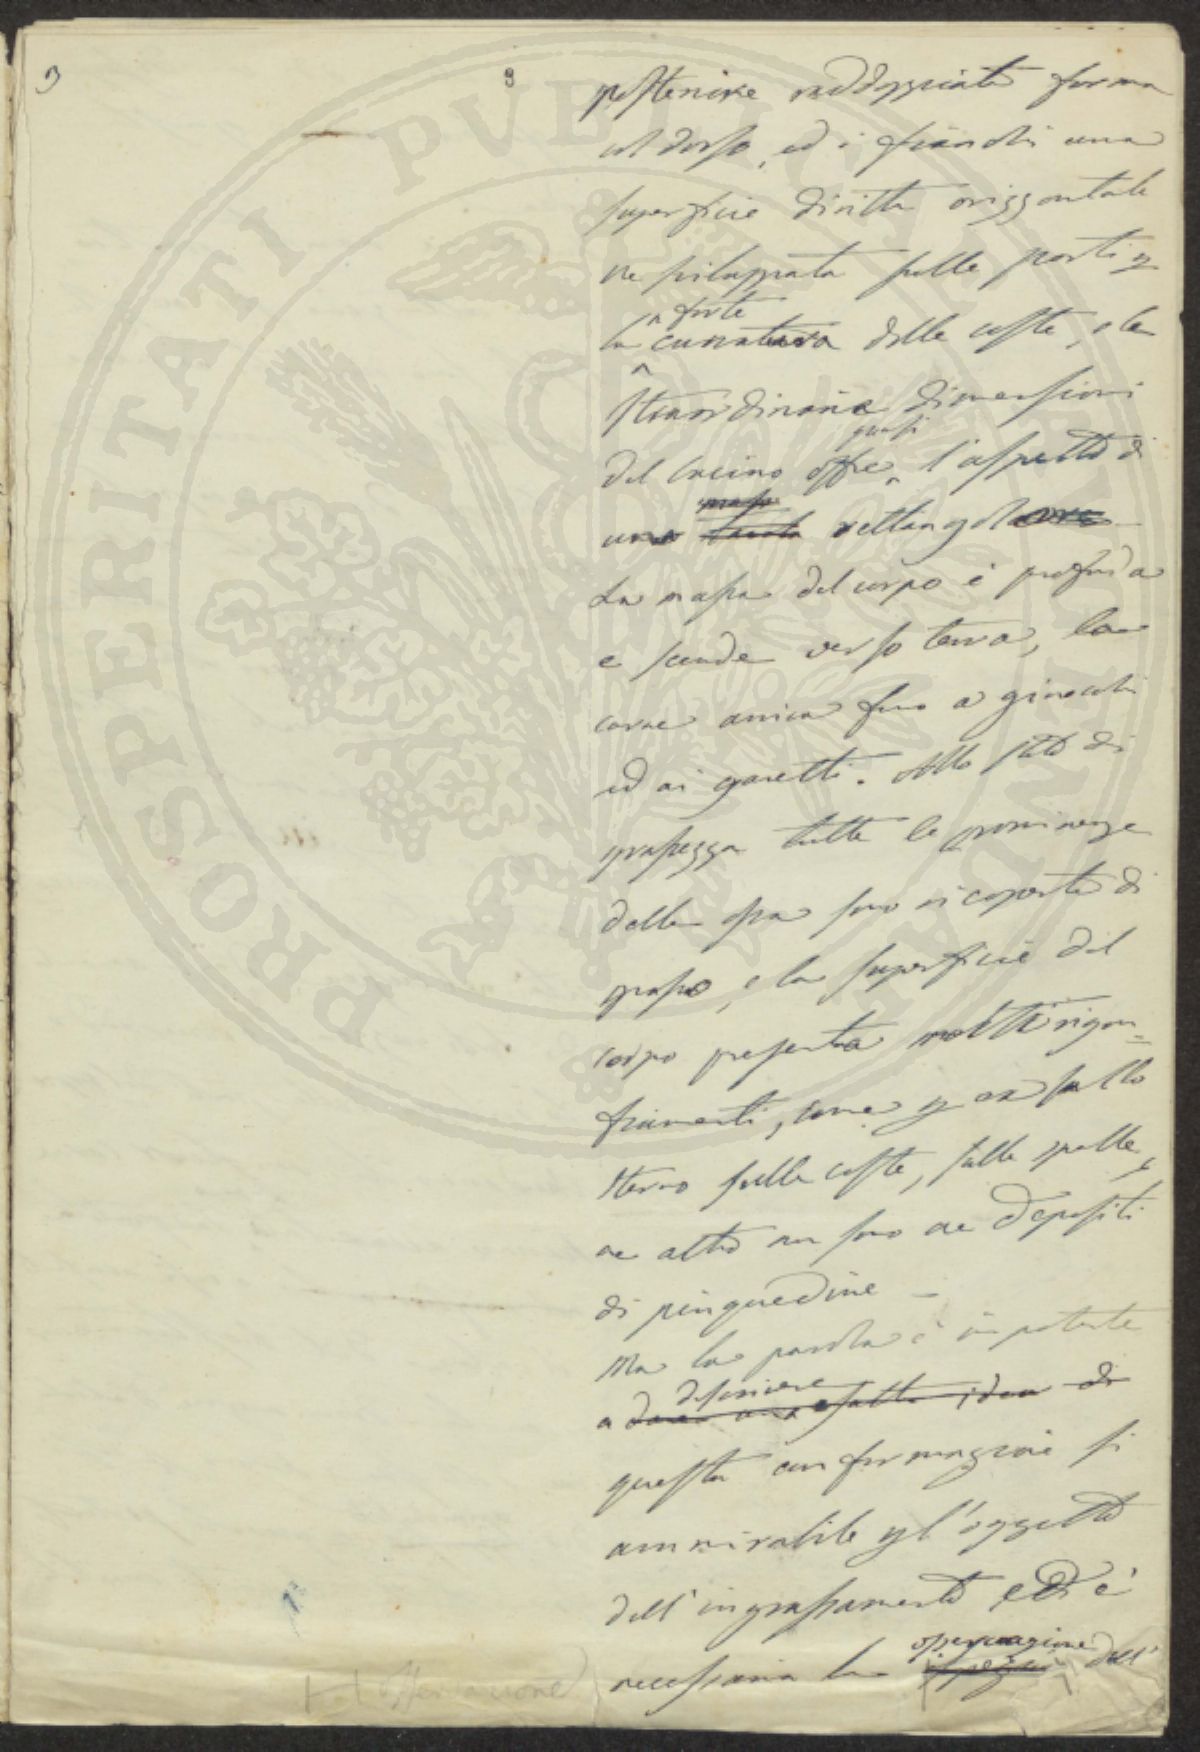 3
3
posteriore raddoppiata forma
col dorso, ed i fianchi una
superficie diritta orizzontale
sviluppata sulle parti p
forte
la curvatura delle coste, e le
straordinarie dimensioni
quasi
del bacino offre l'aspetto di
un rettangolo
La massa del corpo è profonda
e scende verso terra, la
carne arriva fino a ginocchi
ed ai garetti. Allo stato di
grassezza tutte le prominenze
delle ossa sono ricoperte di
grasso, e la superficie del
corpo presenta molti rigon=
fiamenti, come p es sullo
sterno sulle coste, sulle spalle,
che altro non sono che depositi
di pinguedine —
Ma la parola è impotente
descrivere
a dare una esatta idea di
questa conformazione sì
ammirabile p l'oggetto
dell'ingrassamento, ed è
osservazione
necessaria la dell'
osservazione
PROSPERITATI PVBLICAE AVGENDAE